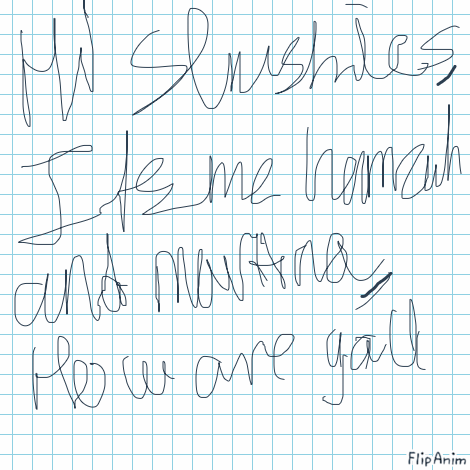 Hi Slushies,
Its me
and
How are yall
FlipAnim